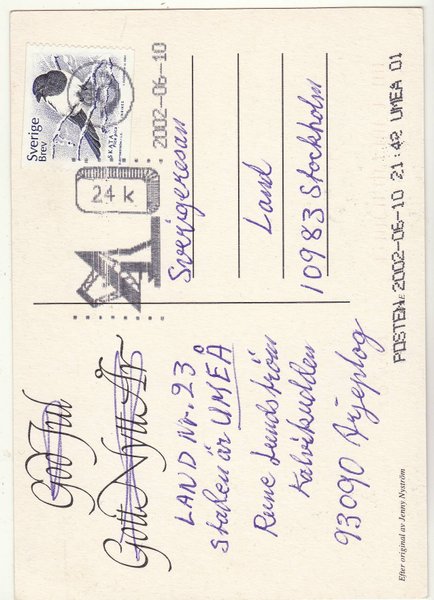 God Jul
Gott Nytt År
LAND Nr. 23
staden är UMEÅ
Rune Lundström
93090 Arjeplog
Efter original av Jenny Nyström
Sverige
Brev
SKATA
2002-06-10
24 k
Sverigeresan
Land
10983 Stockholm
POSTEN 2002-06-10 21:42 UMEA 01